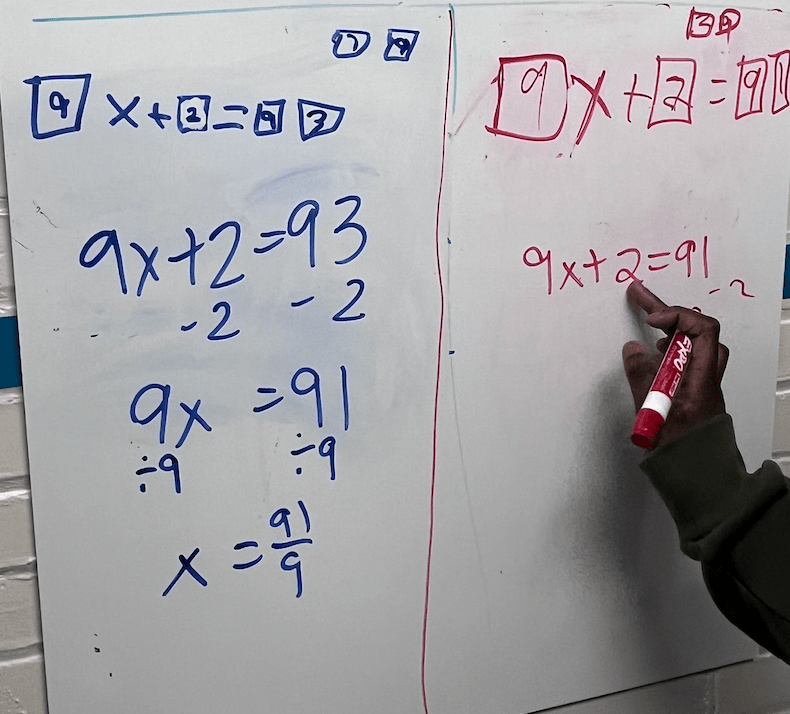 9 x + 2 = 9 3
9x + 2 = 93
- 2 - 2
9x = 91
÷9 ÷9
x = 91/9
9 x + 2 = 9 1
9x + 2 = 91
- 2
EXPO